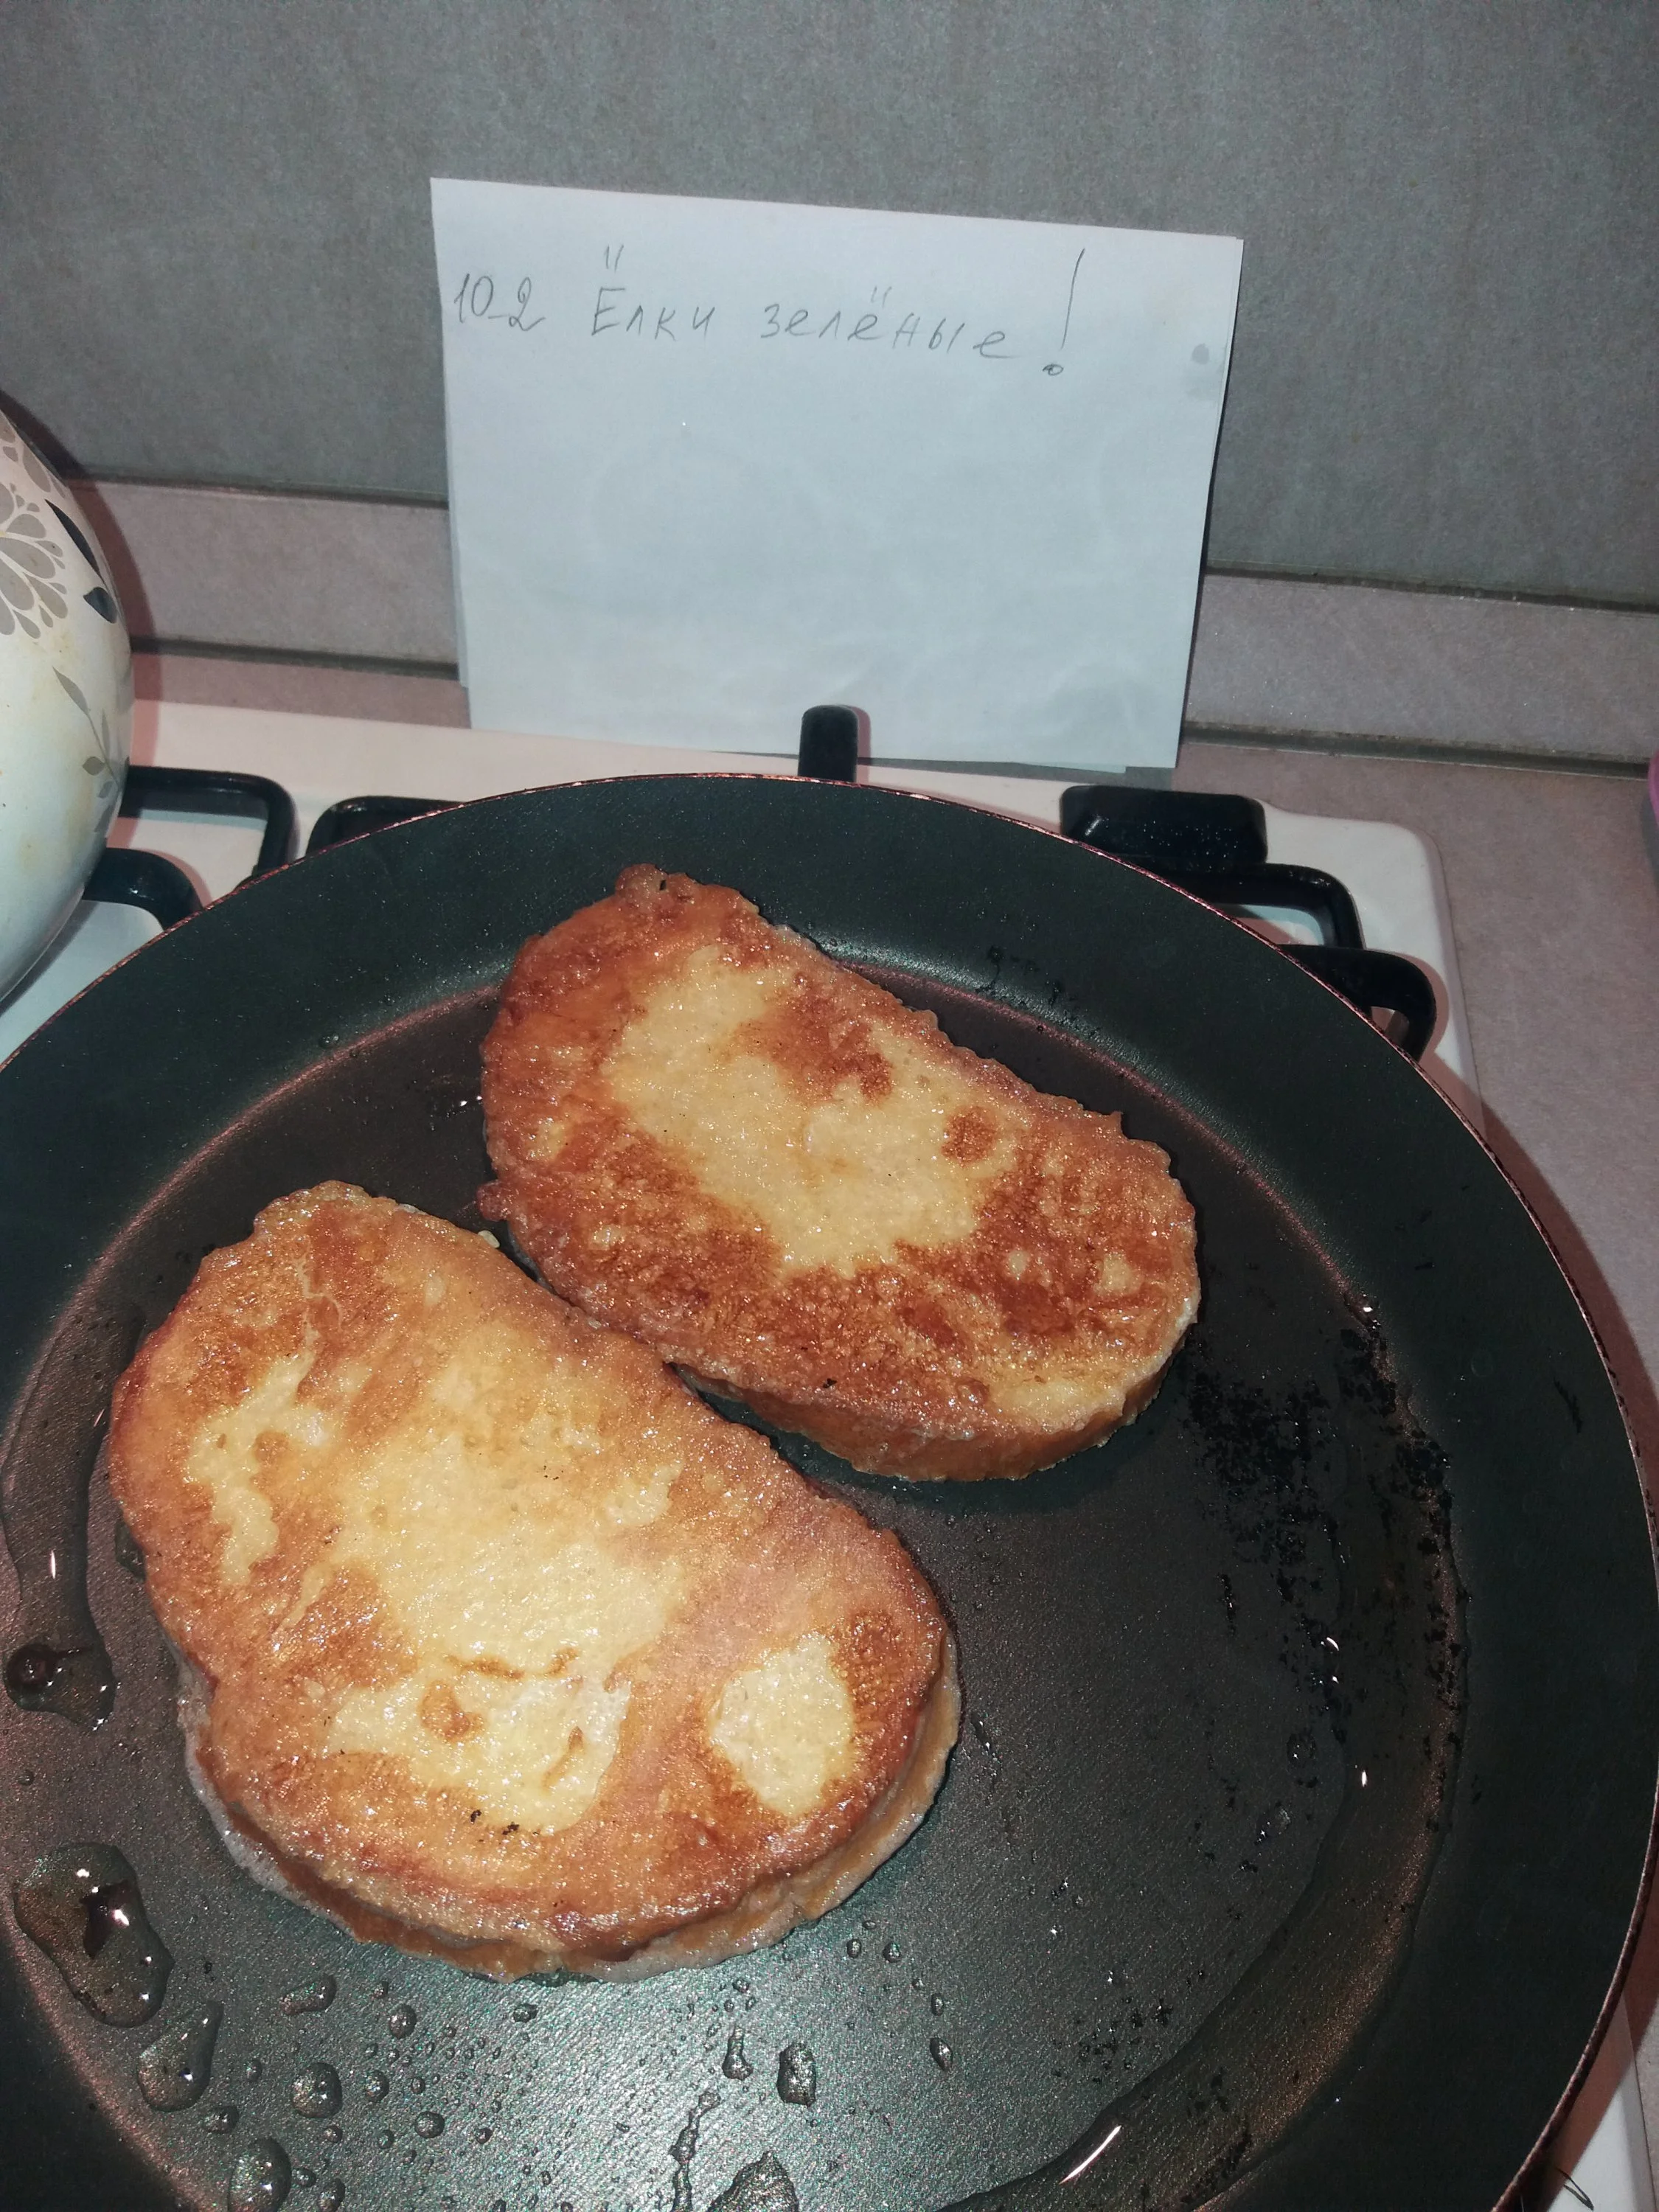 10-2 Ёлки зелёные!